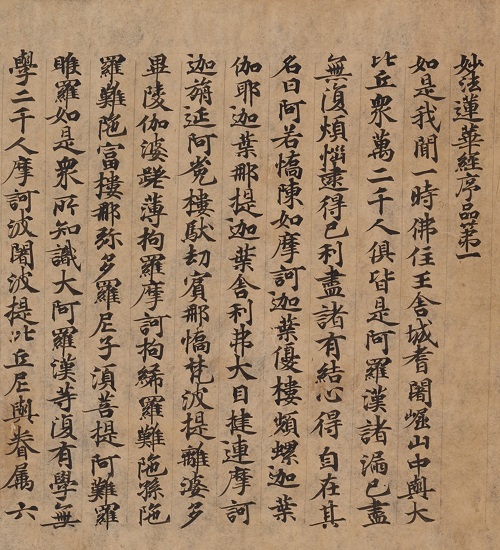 妙法蓮華經序品第一
如是我聞一時佛住王舍城耆闍崛山中與大
比丘衆萬二千人俱皆是阿羅漢諸漏已盡
無復煩惱逮得己利盡諸有結心得自在其
名曰阿若憍陳如摩訶迦葉優樓頻螺迦葉
伽耶迦葉那提迦葉舍利弗大目揵連摩訶
迦旃延阿㝹樓馱劫賓那憍梵波提離婆多
畢陵伽婆蹉薄拘羅摩訶拘絺羅難陁孫陁
羅難陁富樓那弥多羅尼子湏菩提阿難羅
睺羅如是衆所知識大阿羅漢等復有學無
學二千人摩訶波闍波提比丘尼與眷屬六